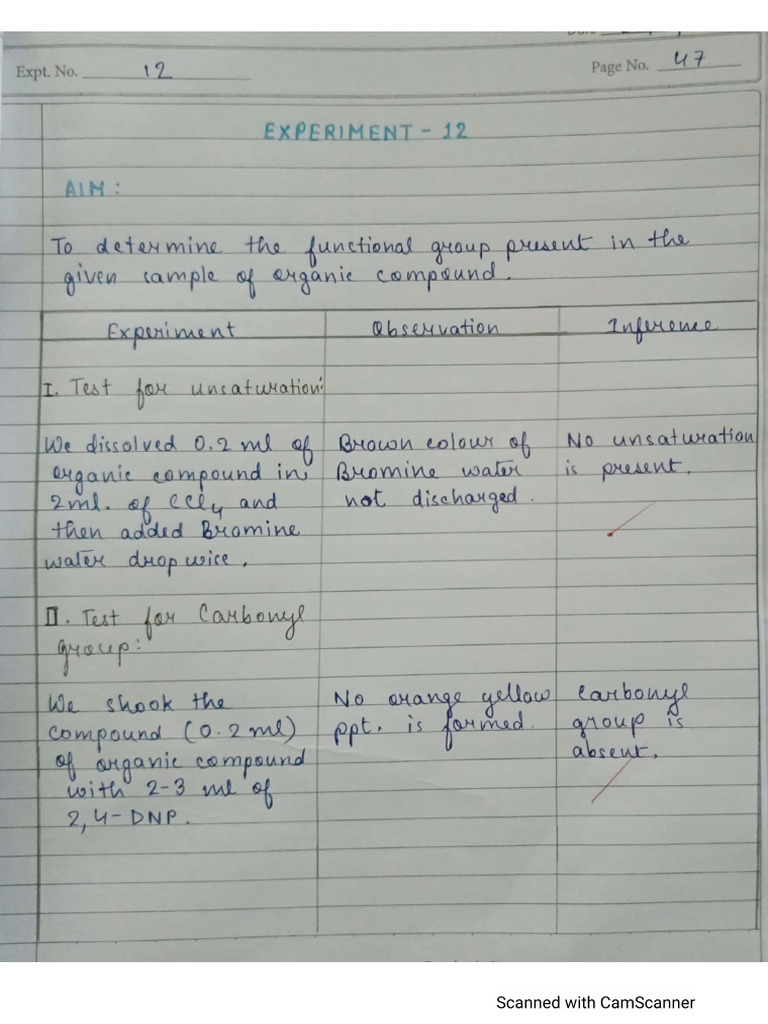 Expt. No. 12
Page No. 47
EXPERIMENT - 12
AIM:
To determine the functional group present in the
given sample of organic compound.
Experiment Observation Inference
I. Test for unsaturation:
We dissolved 0.2 ml of Brown colour of No unsaturation
organic compound in Bromine water is present.
2ml. of CCl4 and not discharged.
then added Bromine
water dropwice.
II. Test for Carbonyl
group:
We shook the No orange yellow Carbonyl
compound (0.2 ml) ppt. is formed. group is
of organic compound absent.
with 2-3 ml of
2,4-DNP.
Scanned with CamScanner